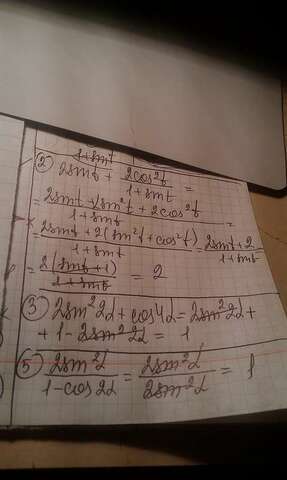 1+sint
② 2sint + 2cos²t / 1+sint =
= 2sint + 2sin²t + 2cos²t / 1+sint =
= 2sint + 2(sin²t + cos²t) / 1+sint = 2sint + 2 / 1+sint
= 2(sint+1) / 1+sint = 2
③ 2sin²2α + cos4α = 2sin²2α +
+ 1 - 2sin²2α = 1
⑤ 2sin²α / 1-cos2α = 2sin²α / 2sin²α = 1